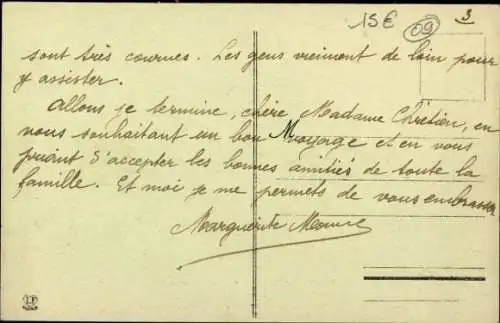 15€
09
3
sont très courues. Les gens vreiment de loin pour
y assister.
Allons je termine, chère Madame Chrétien, en
vous souhaitant un bon voyage et en vous
priant d'accepter les bonnes amitiés de toute la
famille. Et moi je me permets de vous embrasser
Marguerite